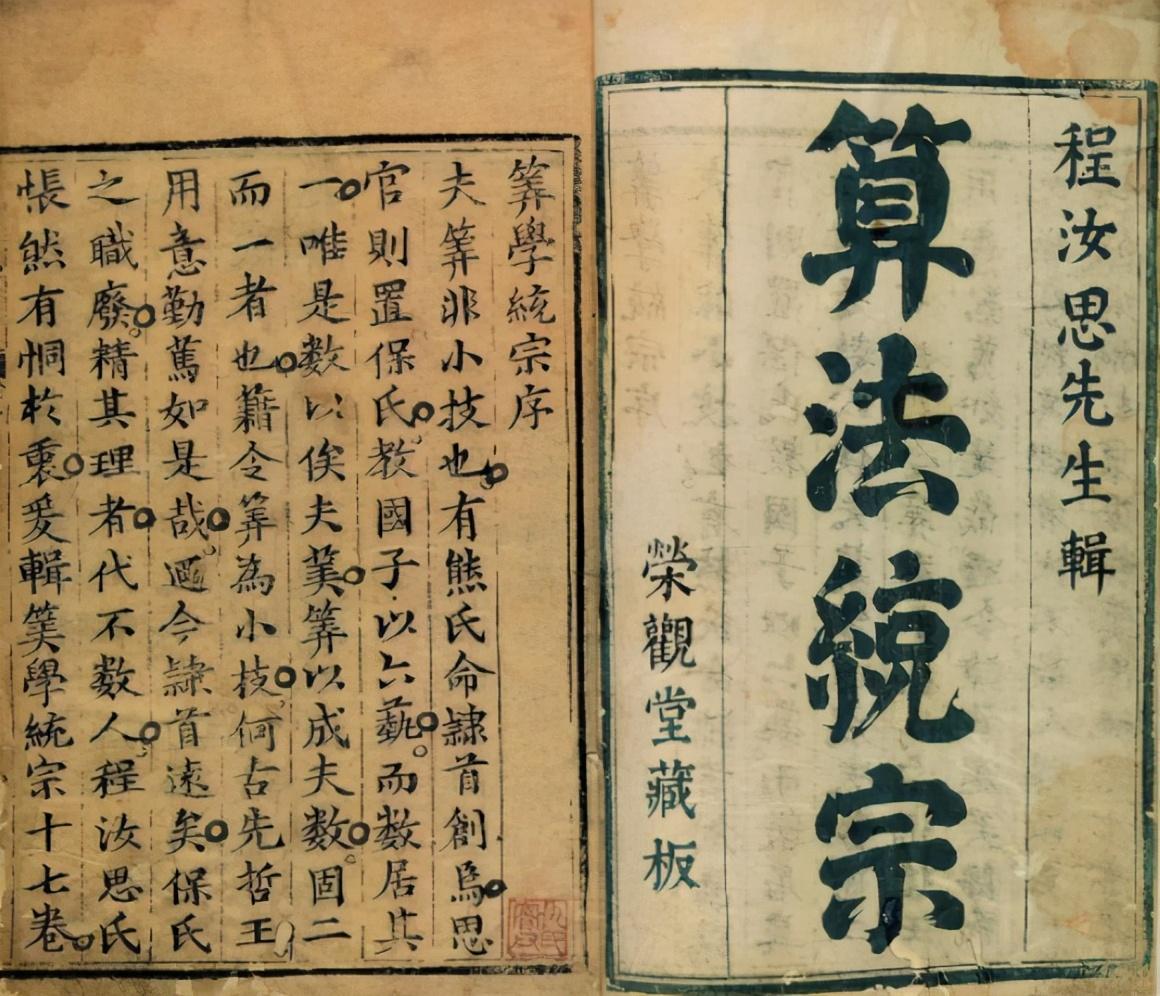 程汝思先生輯
算法統宗
榮觀堂藏板
筭學統宗序
夫筭非小技也有熊氏命隷首創爲思
官則置保氏教國子以六藝而數居其
一唯是數以俟夫筭筭以成夫數固二
而一者也籍令筭為小枝何古先哲王
用意勤篤如是哉迺今隷首遠矣保氏
之職廢精其理者代不數人程汝思氏
悵然有恫於衷爰輯筭學統宗十七卷